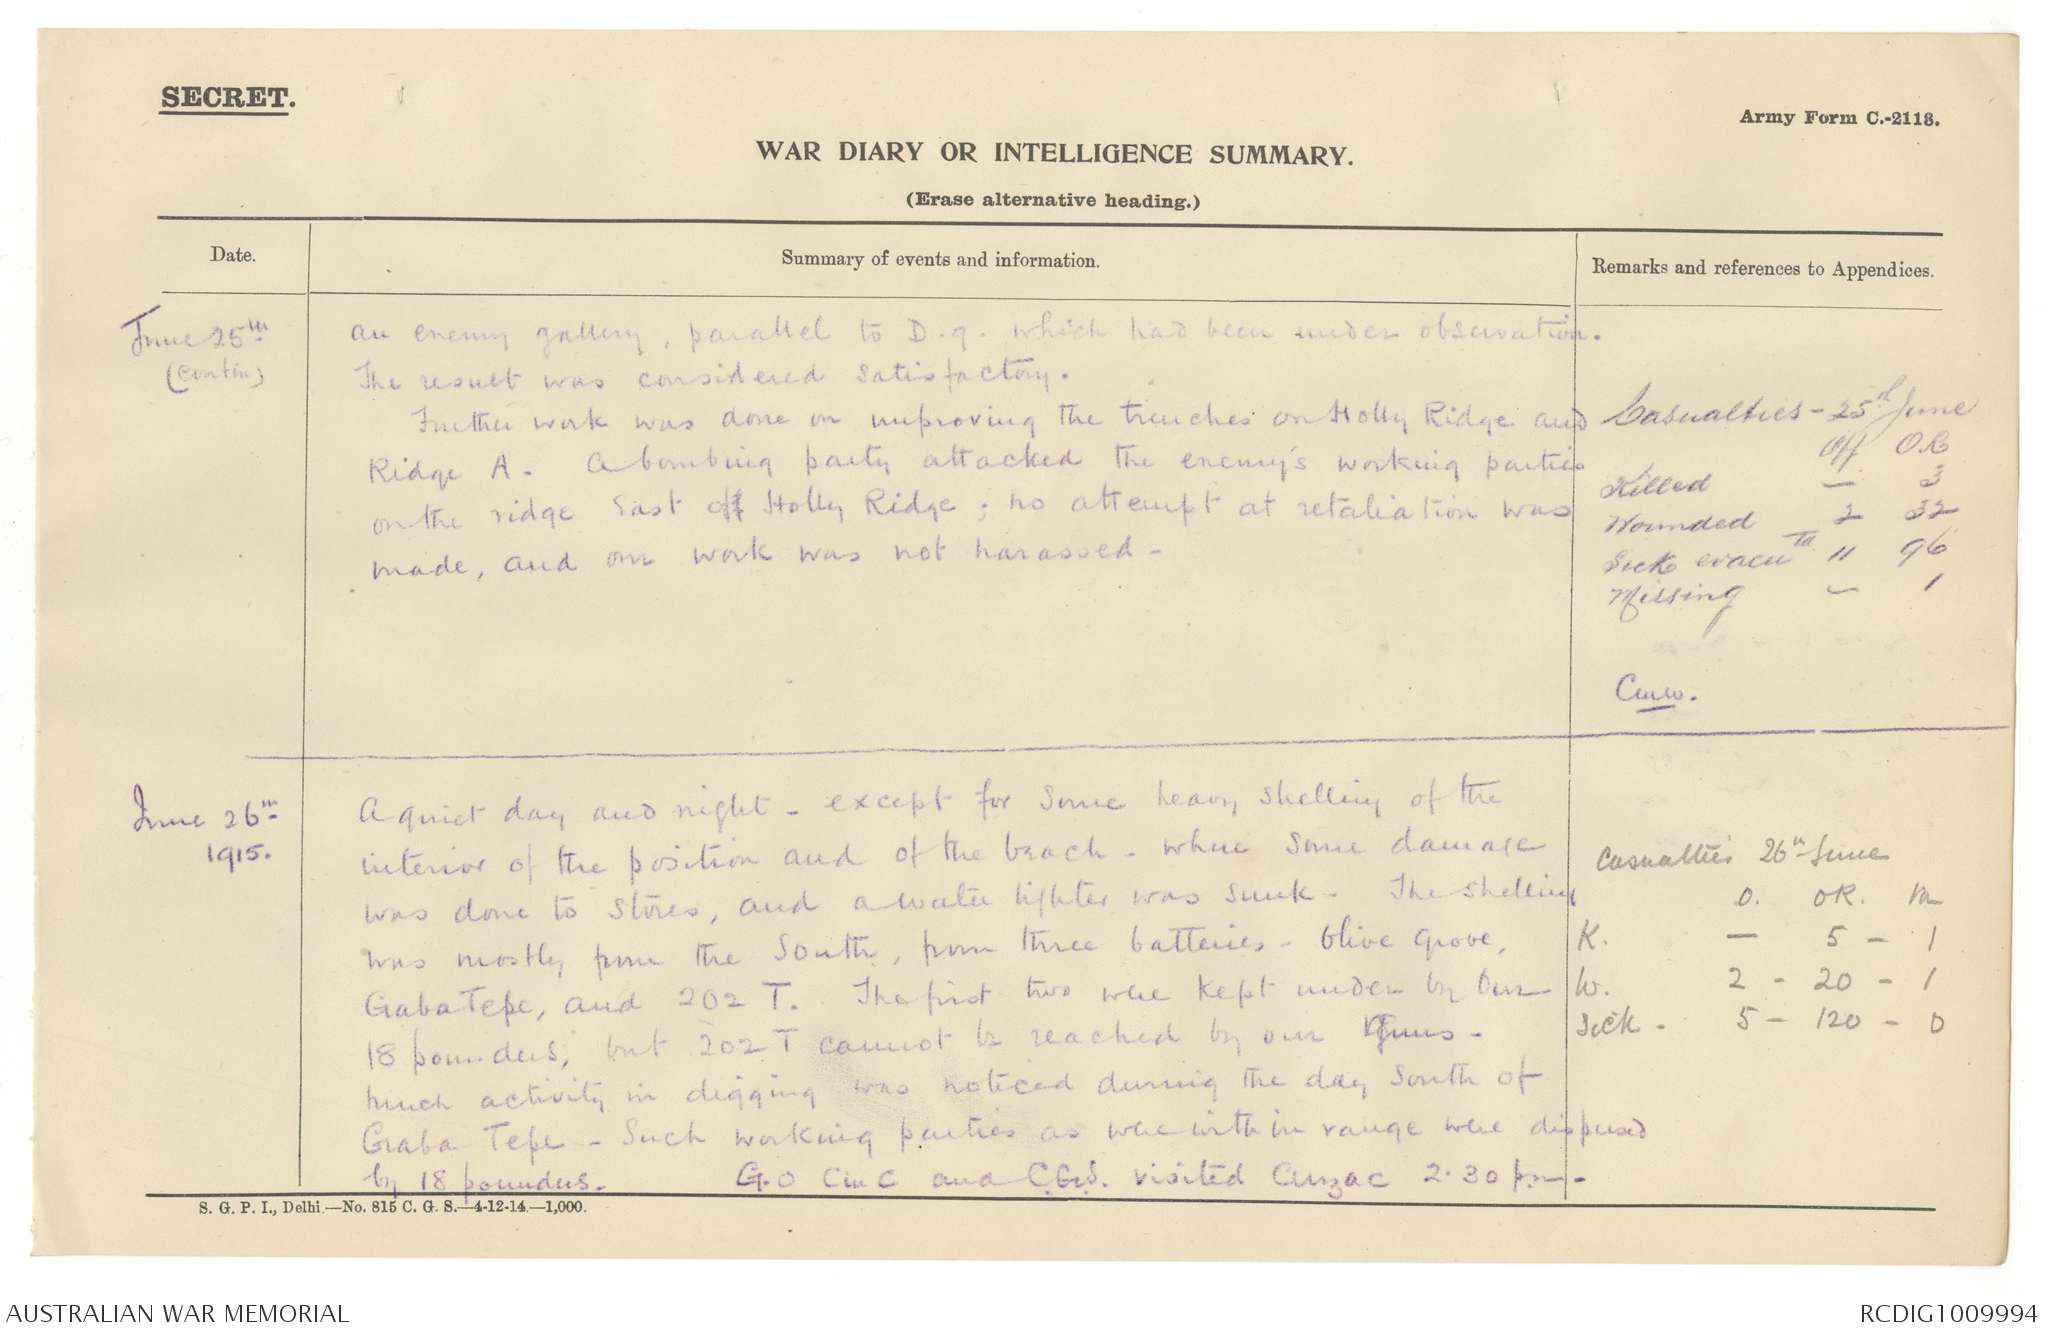 SECRET.
Army Form C.-2118.
WAR DIARY OR INTELLIGENCE SUMMARY.
(Erase alternative heading.)
Date.
Summary of events and information.
Remarks and references to Appendices.
June 25th
(contin)
an enemy gallery, parallel to D.9. which had been under observation.
The result was considered satisfactory.
Further work was done on improving the trenches on Holly Ridge and
Ridge A. A bombing party attacked the enemy's working parties
on the ridge East of Holly Ridge; no attempt at retaliation was
made, and our work was not harassed -
Casualties - 25th June
Off O.R
Killed — 3
Wounded 2 32
Sick evacu td 11 96
Missing — 1
June 26th
1915.
A quiet day and night - except for some heavy shelling of the
interior of the position and of the beach - where some damage
was done to stores, and a water lighter was sunk - The shelling
was mostly from the South, from three batteries - Olive Grove,
Gaba Tepe, and 202 T. The first two were kept under by our
18 pounders, but 202 T cannot be reached by our guns -
Much activity in digging was noticed during the day South of
Gaba Tepe - Such working parties as were within range were dispersed
by 18 pounders. G.O C in C and C.G.S. visited Anzac 2.30 pm -
Casualties 26th June
O. OR. M
K. — 5 - 1
W. 2 - 20 - 1
Sick - 5 - 120 - 0
S. G. P. I., Delhi.—No. 815 C. G. S.—4-12-14.—1,000.
AUSTRALIAN WAR MEMORIAL
RCDIG1009994